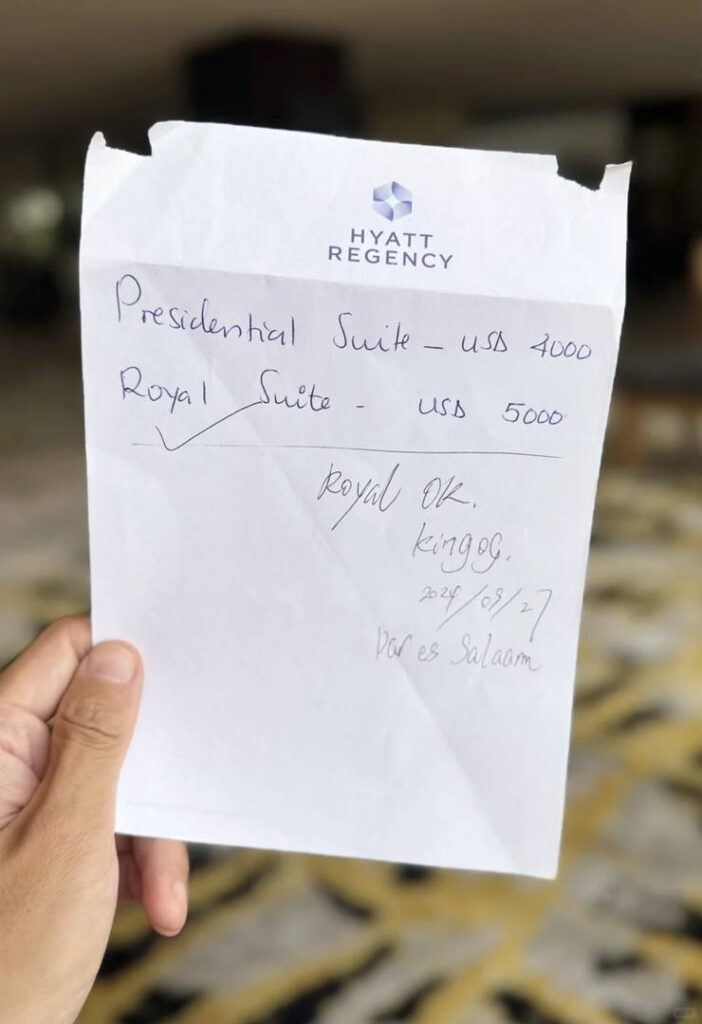 HYATT
REGENCY
Presidential Suite – USD 4000
Royal Suite - USD 5000
Royal OK.
kingog.
2024/09/27
Dar es Salaam